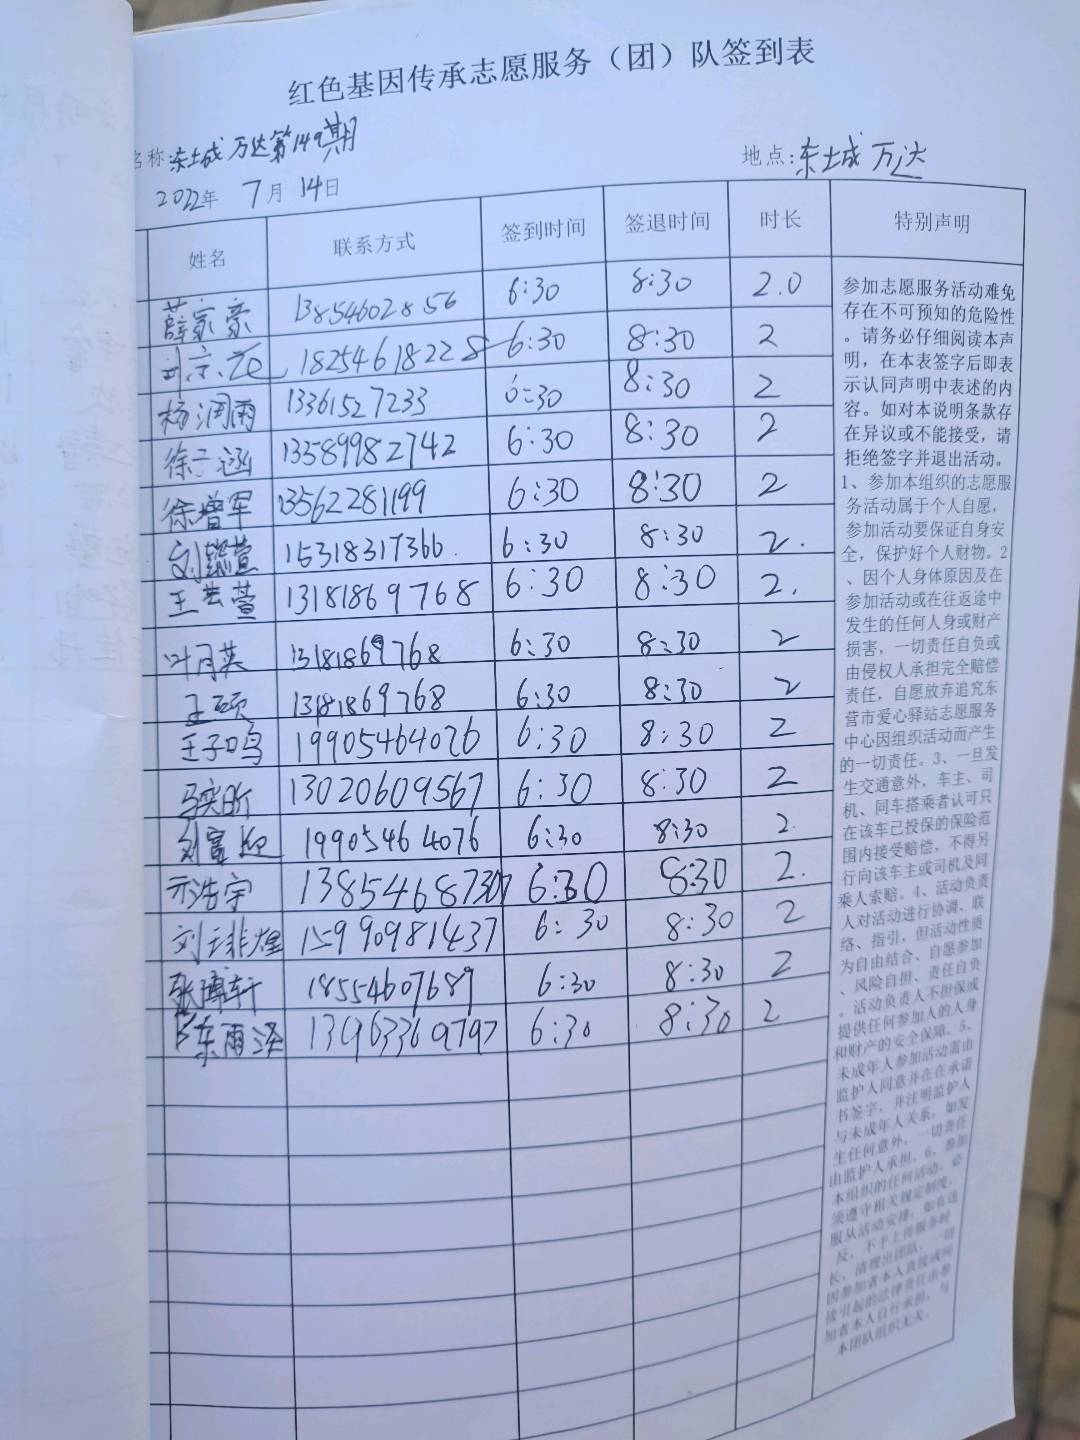 红色基因传承志愿服务（团）队签到表
名称 东土城万达第149期
地点：东土城万达
2022年 7月 14日
姓名 联系方式 签到时间 签退时间 时长 特别声明
薛家豪 13854602856 6:30 8:30 2.0
18254618228 6:30 8:30 2
杨润雨 13361527233 6:30 8:30 2
徐子涵 13589982742 6:30 8:30 2
徐增军 13562281199 6:30 8:30 2
刘懿萱 15318317366. 6:30 8:30 2.
王艺萱 13181869768 6:30 8:30 2.
叶月英 13181869768 6:30 8:30 2
王硕 13181869768 6:30 8:30 2
王子鸣 19905464076 6:30 8:30 2
马奕昕 13020609567 6:30 8:30 2
刘富迎 19905464076 6:30 8:30 2.
亓浩宇 13854687307 6:30 8:30 2.
刘主非煌 15990981437 6:30 8:30 2
张博轩 18554607689 6:30 8:30 2
陈雨泽 13963369797 6:30 8:30 2
参加志愿服务活动难免
存在不可预知的危险性
。请务必仔细阅读本声
明，在本表签字后即表
示认同声明中表述的内
容。如对本说明条款存
在异议或不能接受，请
拒绝签字并退出活动。
1、参加本组织的志愿服
务活动属于个人自愿，
参加活动要保证自身安
全，保护好个人财物。2
、因个人身体原因及在
参加活动或在往返途中
发生的任何人身或财产
损害，一切责任自负或
由侵权人承担完全赔偿
责任，自愿放弃追究东
营市爱心驿站志愿服务
中心因组织活动而产生
的一切责任。3、一旦发
生交通意外，车主、司
机、同车搭乘者认可只
在该车已投保的保险范
围内接受赔偿，不得另
行向该车主或司机及同
乘人索赔。4、活动负责
人对活动进行协调、联
络、指引，但活动性质
为自由结合、自愿参加
、风险自担、责任自负
。活动负责人不担保或
提供任何参加人的人身
和财产的安全保障。5、
未成年人参加活动需由
监护人同意并在在承诺
书签字，并注明监护人
与未成年人关系，如发
生任何意外，一切责任
由监护人承担。6、参加
本组织的任何活动，必
须遵守相关规定制度，
服从活动安排；如有违
反，不予上传服务时
长，清理出团队。一切
因参加者本人直接或间
接引起的法律责任由参
加者本人自行承担，与
本团队组织无关。